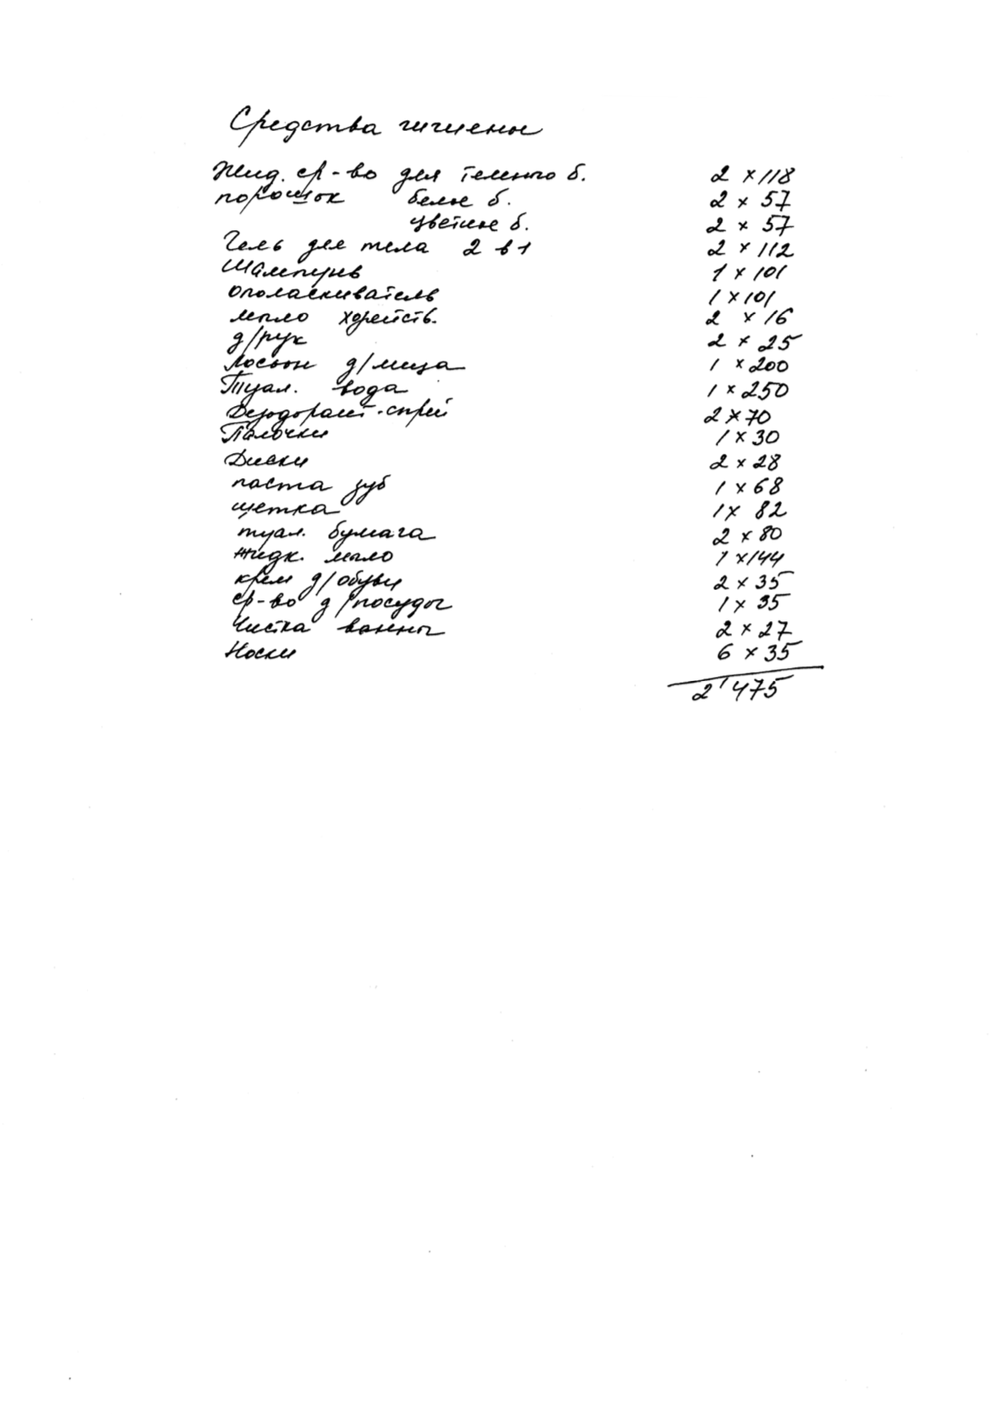 Средства гигиены
Жид. ср-во для темного б. 2 × 118
порошок белое б. 2 × 57
цветное б. 2 × 57
Гель для тела 2 в 1 2 × 112
Шампунь 1 × 101
Ополаскиватель 1 × 101
мыло хозяйств. 2 × 16
д/рук 2 × 25
Лосьон д/лица 1 × 200
Туал. вода 1 × 250
Дезодорант-спрей 2 × 70
Палочки 1 × 30
Диски 2 × 28
паста зуб 1 × 68
щетка 1 × 82
туал. бумага 2 × 80
жидк. мыло 1 × 144
крем д/обуви 2 × 35
ср-во д/посуды 1 × 35
Чистка ванны 2 × 27
Носки 6 × 35
2'475